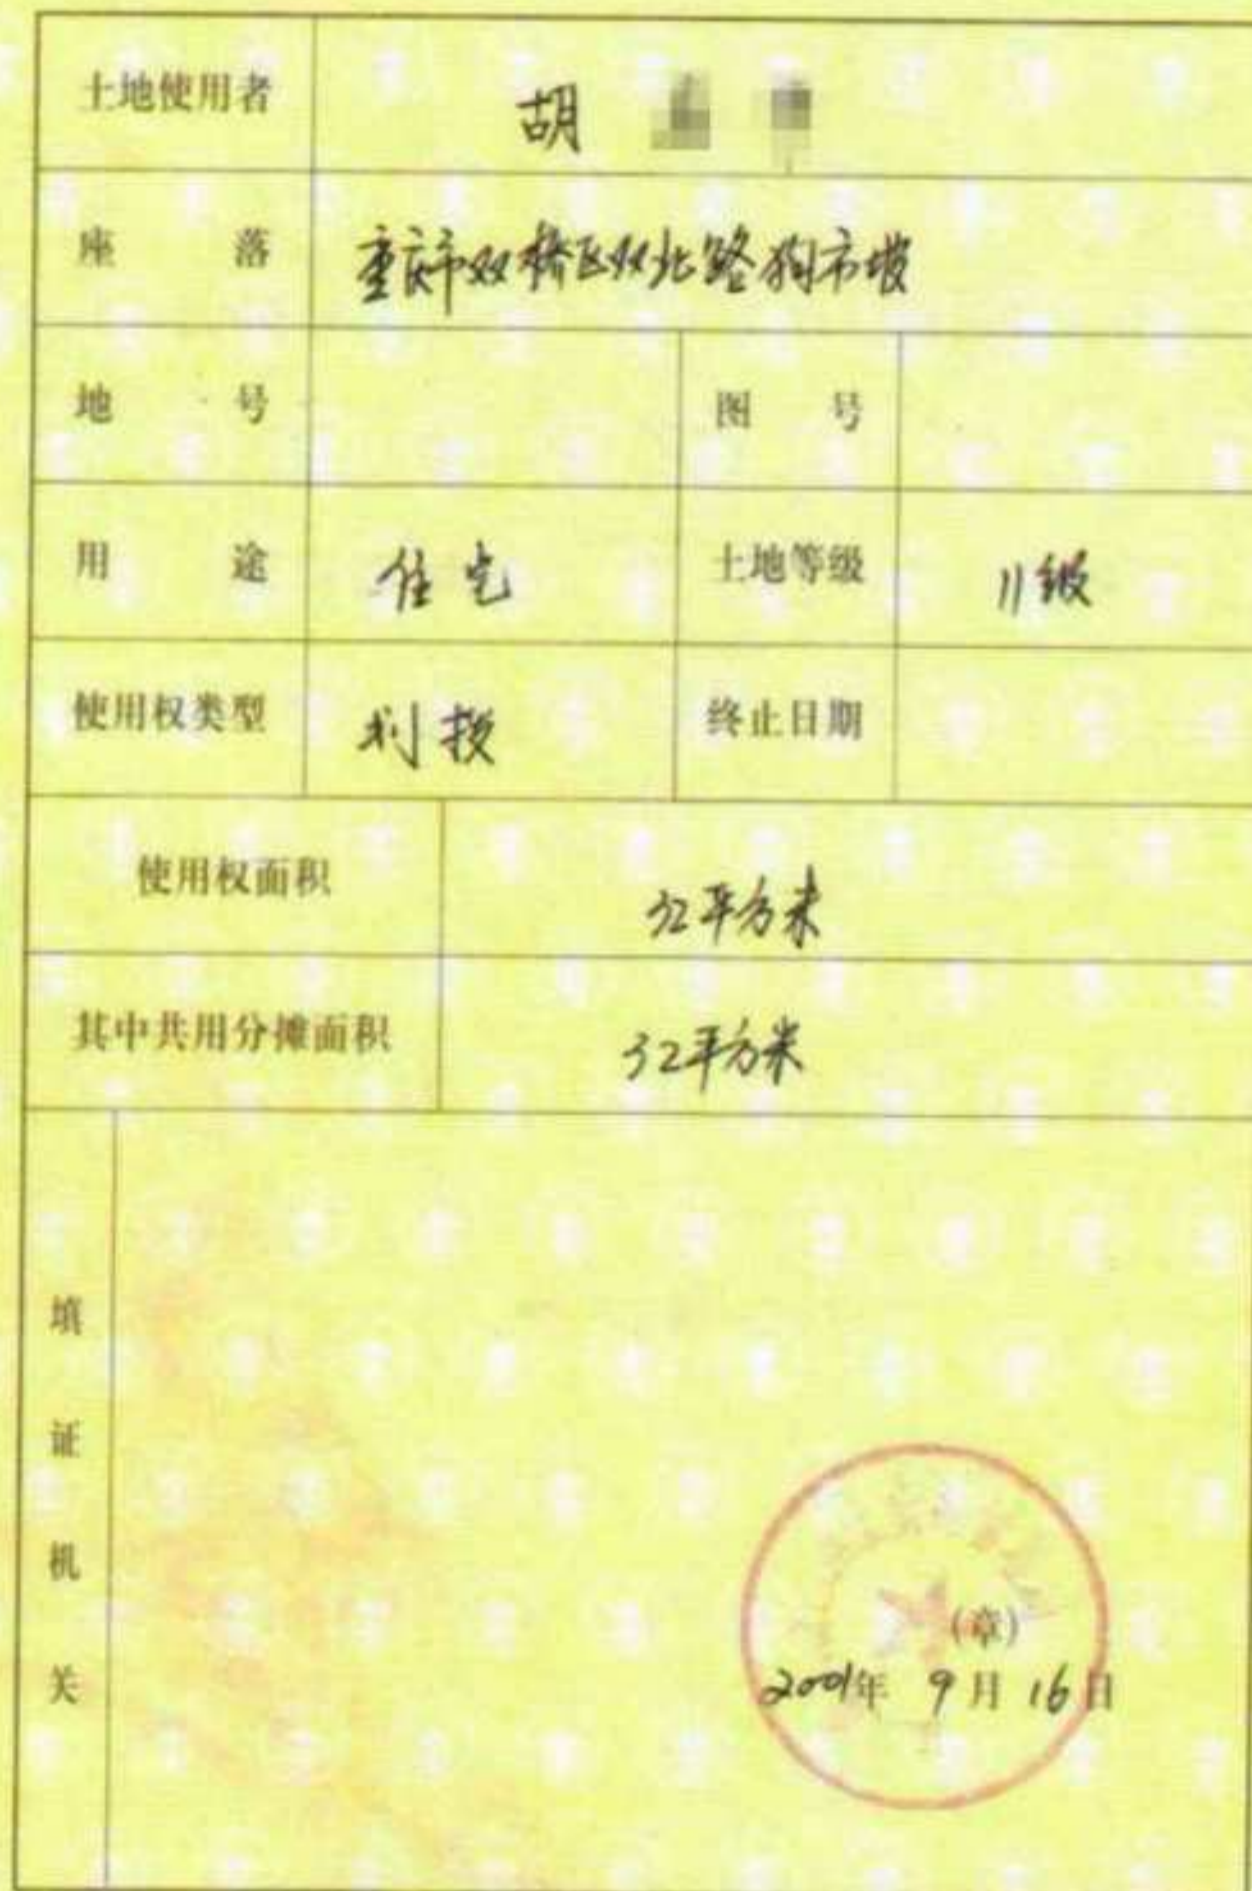 土地使用者 胡
座落 重庆市双桥区双北路狗市坡
地号 图号
用途 住宅 土地等级 11级
使用权类型 划拨 终止日期
使用权面积 32平方米
其中共用分摊面积 32平方米
填证机关
(章)
2001年9月16日